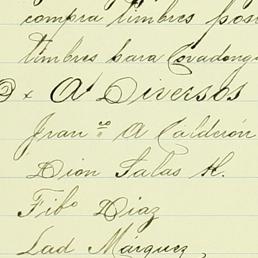 compra timbres pos
timbres para Covadong
x A Diversos
Fran.co A Calderón
Dion Salas H.
Tibo Diaz
Lad Márquez